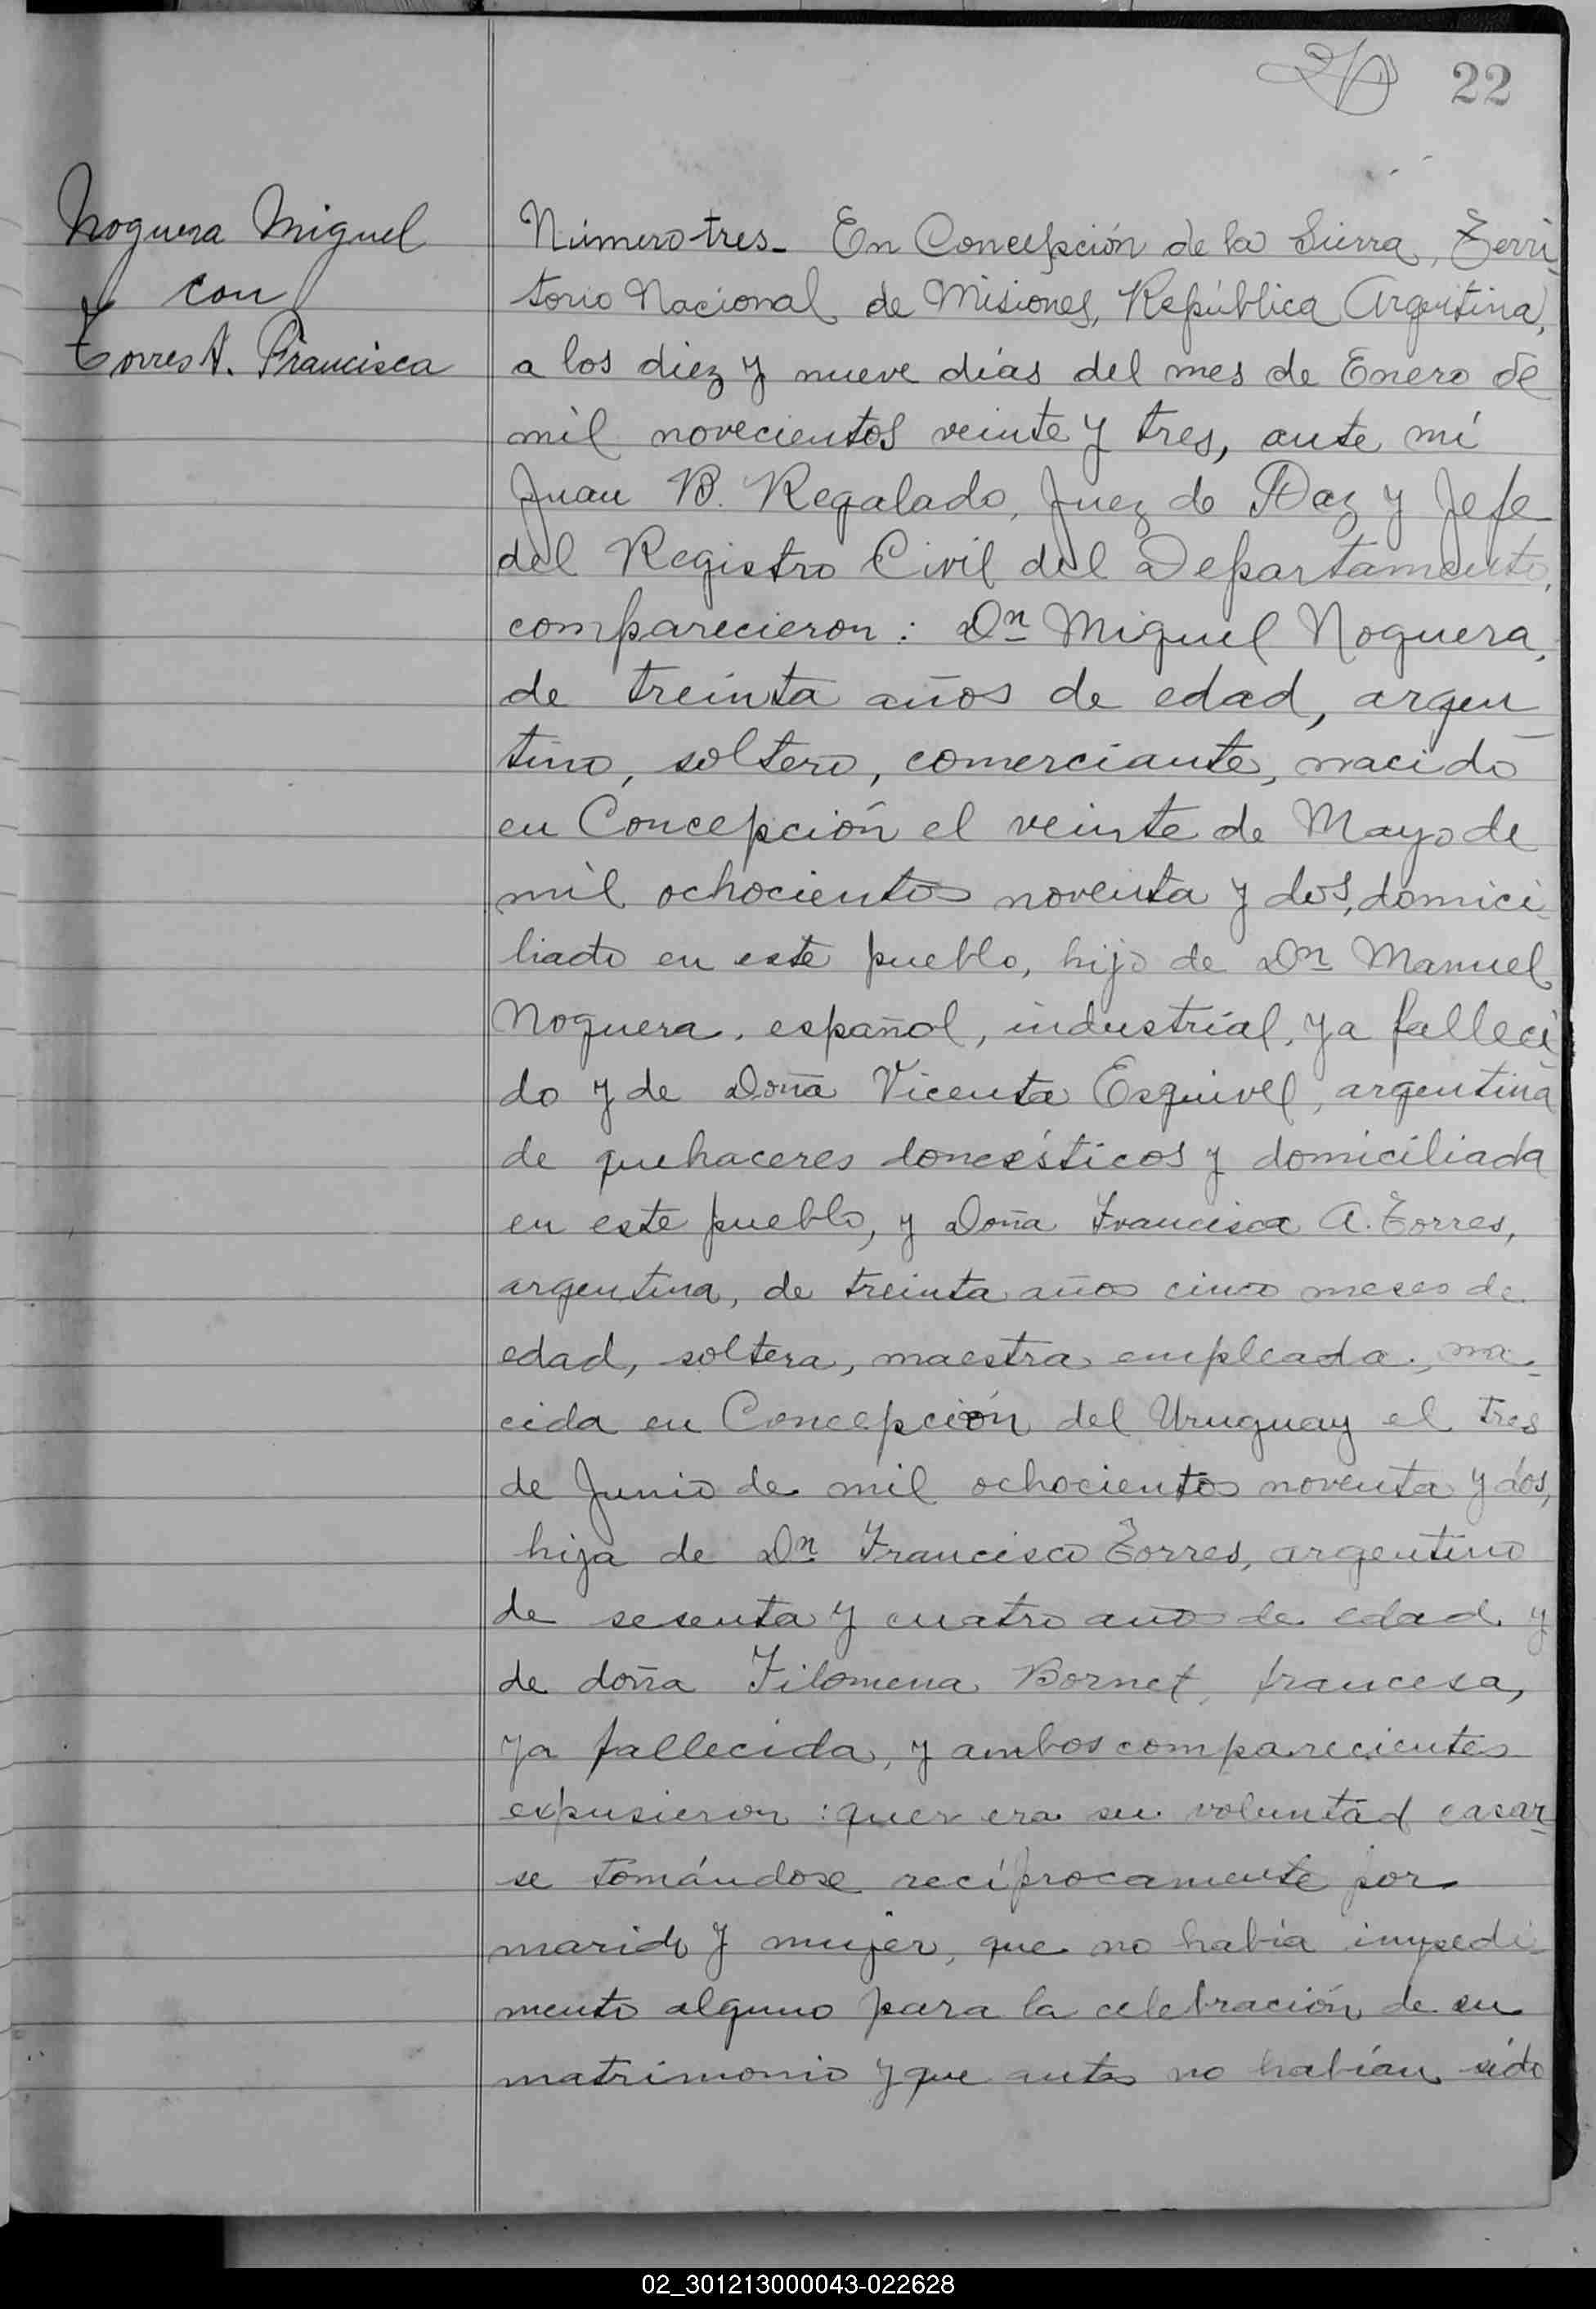 22
Noguera Miguel
con
Torres A. Francisca
Número tres_ En Concepción de la Sierra, Terri_
torio Nacional de Misiones, República Argentina,
a los diez y nueve días del mes de Enero de
mil novecientos veinte y tres, ante mí
Juan B. Regalado, Juez de Paz y Jefe
del Registro Civil del Departamento,
comparecieron: Dn Miguel Noguera,
de treinta años de edad, argen_
tino, soltero, comerciante, nacido
en Concepción el veinte de Mayo de
mil ochocientos noventa y dos, domici_
liado en este pueblo, hijo de Dn Manuel
Noguera, español, industrial, ya falleci_
do y de Doña Vicenta Esquivel, argentina
de quehaceres domésticos y domiciliada
en este pueblo, y Doña Francisca A. Torres,
argentina, de treinta años cinco meses de
edad, soltera, maestra empleada, na_
cida en Concepción del Uruguay el tres
de Junio de mil ochocientos noventa y dos,
hija de Dn Francisco Torres, argentino
de sesenta y cuatro años de edad y
de doña Filomena Bornet, francesa,
ya fallecida, y ambos comparecientes
expusieron: que era su voluntad casar_
se tomándose recíprocamente por
marido y mujer, que no había impedi_
mento alguno para la celebración de su
matrimonio y que antes no habían sido
02_301213000043-022628